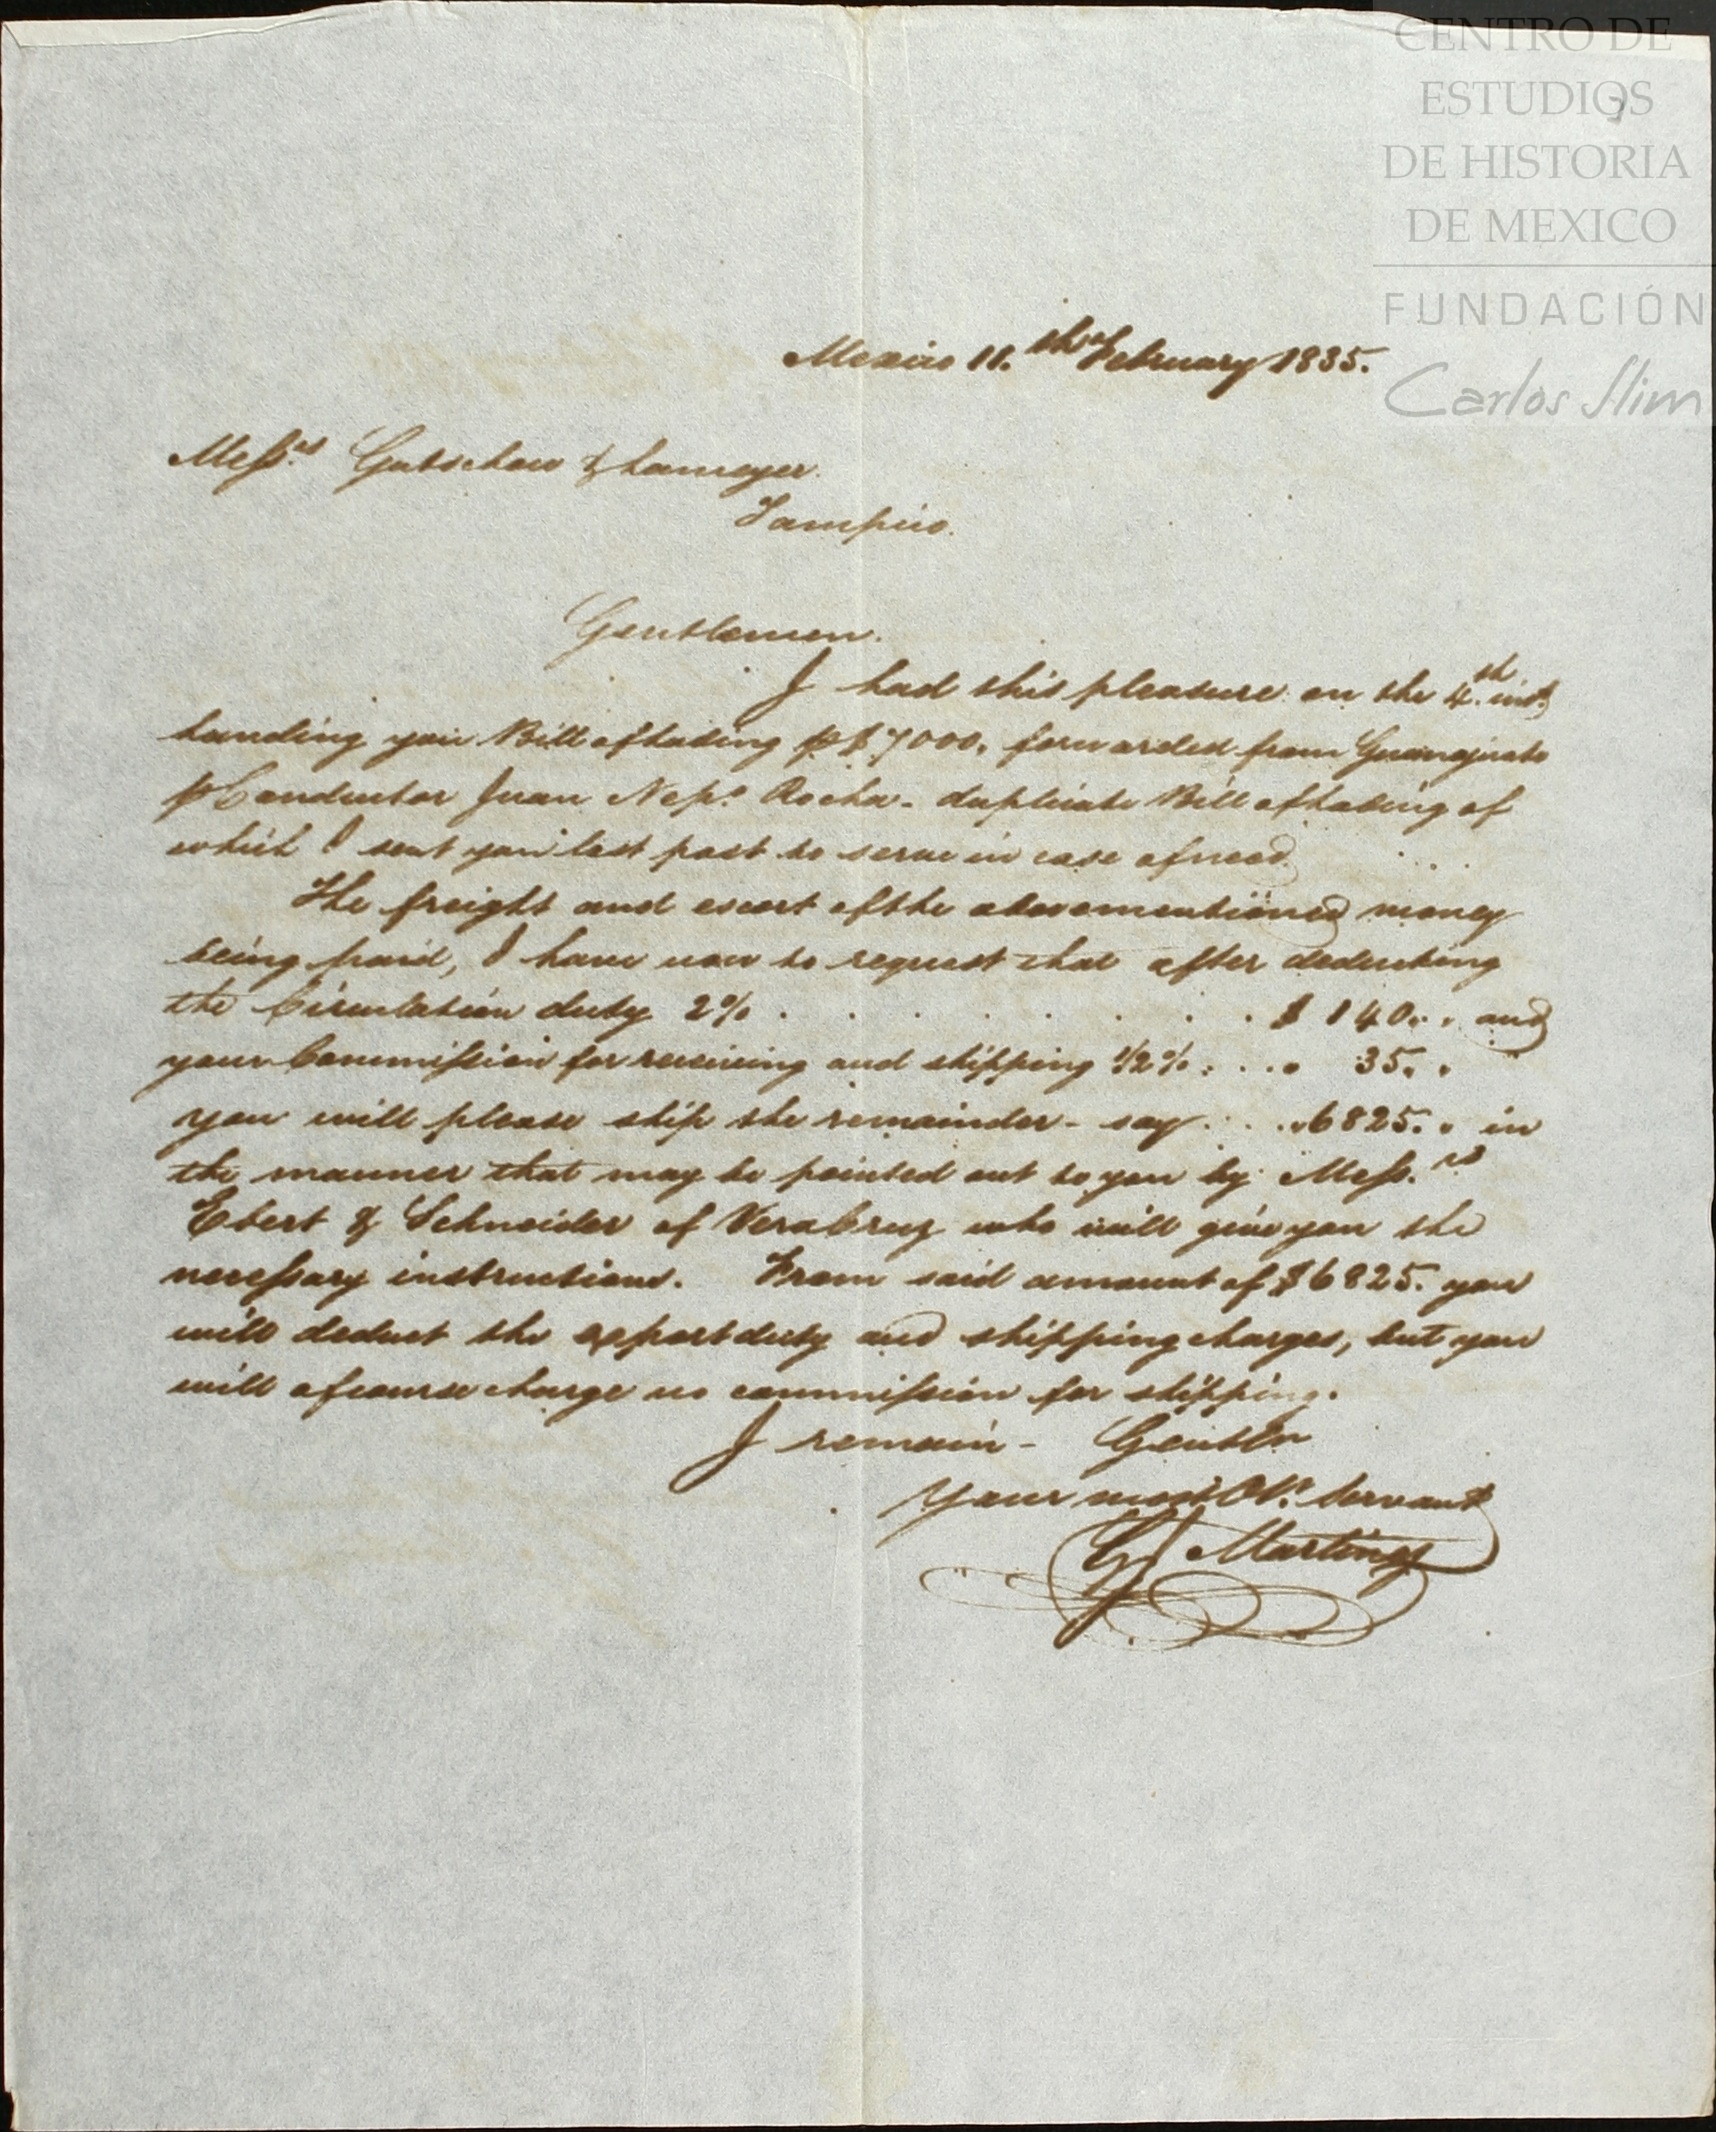 CENTRO DE
ESTUDIOS
DE HISTORIA
DE MEXICO
FUNDACIÓN
Carlos Slim
Mexico 11.th February 1835.
Messrs. Gutschow &
Tampico.
Gentlemen.
I had this pleasure on the 4.th inst.
handing you Bill of Lading p $7000. forwarded from Guanajuato
p Conductor Juan Nepo. Rocha - duplicate Bill of Lading of
which I sent you last post to serve in case of need.
The freight and escort of the abovementioned money
being paid, I have now to request that after deducting
the Circulation duty 2% . . . . . . . . . $ 140. . and
your Commission for receiving and shipping 1/2% . . . . 35. .
you will please ship the remainder - say . . . „ 6825. „ in
the manner that may be pointed out to you by Mess.rs
Ebert & Schneider of VeraCruz who will give you the
necessary instructions. From said amount of $6825. you
will deduct the export duty and shipping charges, but you
will of course charge no commission for shipping.
I remain - Gentln
Your most Obt. Servant
G J Martins